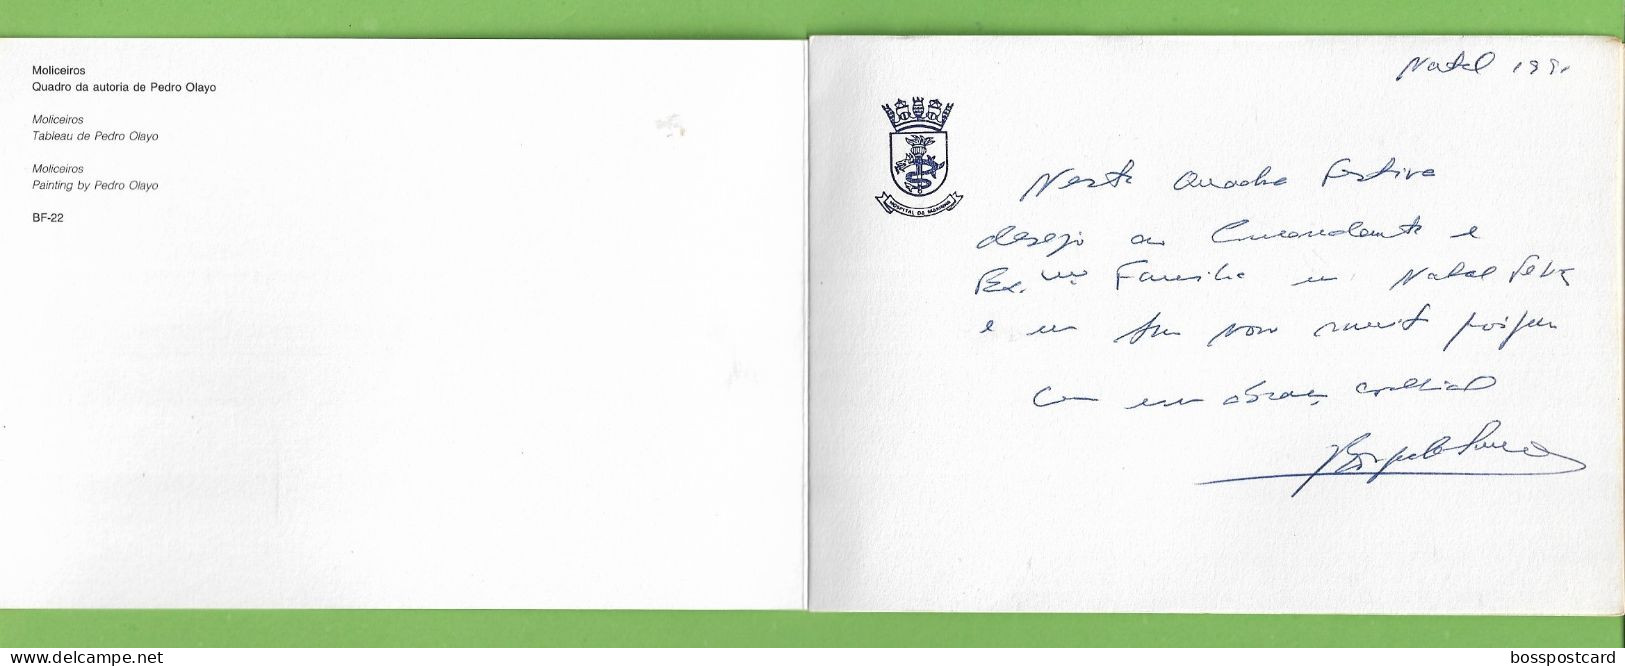 Moliceiros
Quadro da autoria de Pedro Olayo
Moliceiros
Tableau de Pedro Olayo
Moliceiros
Painting by Pedro Olayo
BF-22
Natal 1991
HOSPITAL DA MARINHA
Nesta Quadra Festiva
desejo ao Comandante e
Ex.ma Familia um Natal Feliz
e um Ano novo muito próspero
Com um abraço cordial
www.delcampe.net
bosspostcard